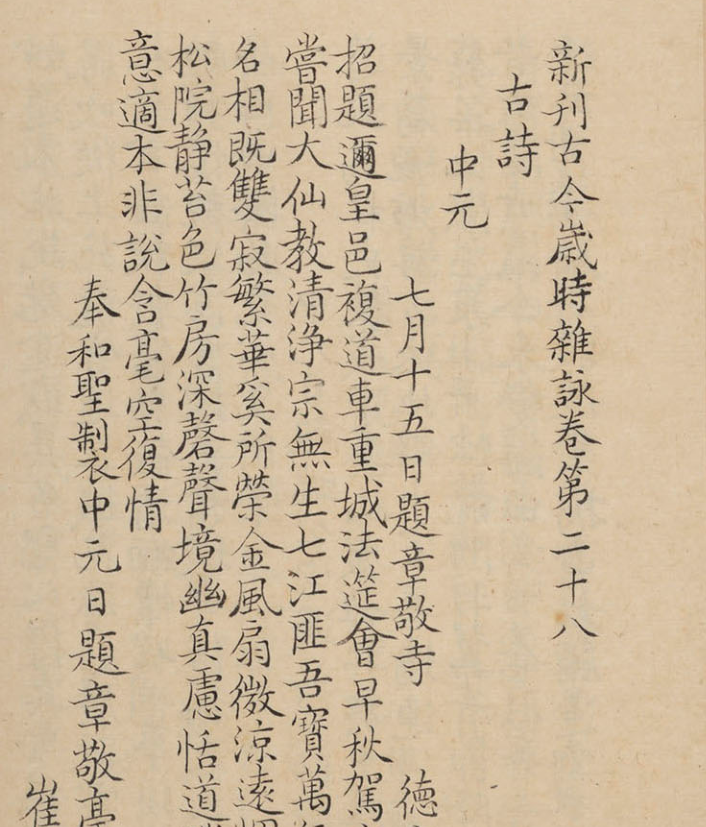 新刊古今歲時雜詠卷第二十八
古詩
中元
七月十五日題章敬寺 德
招題邇皇邑複道車重城法筵會早秋駕
嘗聞大仙教清淨宗無生七江匪吾寶萬
名相既雙寂繁華奚所榮金風扇微涼遠
松院静苔色竹房深磬聲境幽真慮恬道
意適本非說含毫空復情
奉和聖製中元日題章敬
崔